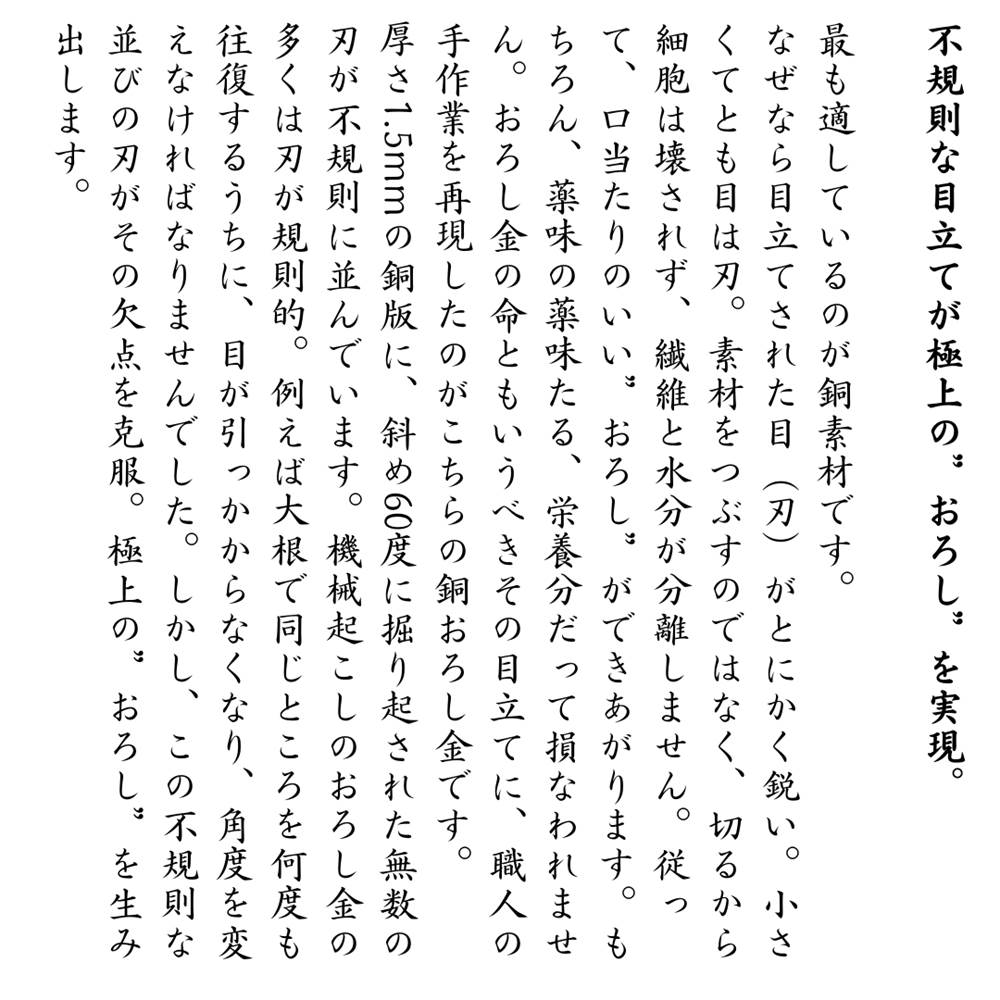 不規則な目立てが極上の”おろし”を実現。
最も適しているのが銅素材です。
なぜなら目立てされた目（刃）がとにかく鋭い。小さ
くてとも目は刃。素材をつぶすのではなく、切るから
細胞は壊されず、繊維と水分が分離しません。従っ
て、口当たりのいい”おろし”ができあがります。も
ちろん、薬味の薬味たる、栄養分だって損なわれませ
ん。おろし金の命ともいうべきその目立てに、職人の
手作業を再現したのがこちらの銅おろし金です。
厚さ1.5mmの銅版に、斜め60度に掘り起された無数の
刃が不規則に並んでいます。機械起こしのおろし金の
多くは刃が規則的。例えば大根で同じところを何度も
往復するうちに、目が引っかからなくなり、角度を変
えなければなりませんでした。しかし、この不規則な
並びの刃がその欠点を克服。極上の”おろし”を生み
出します。